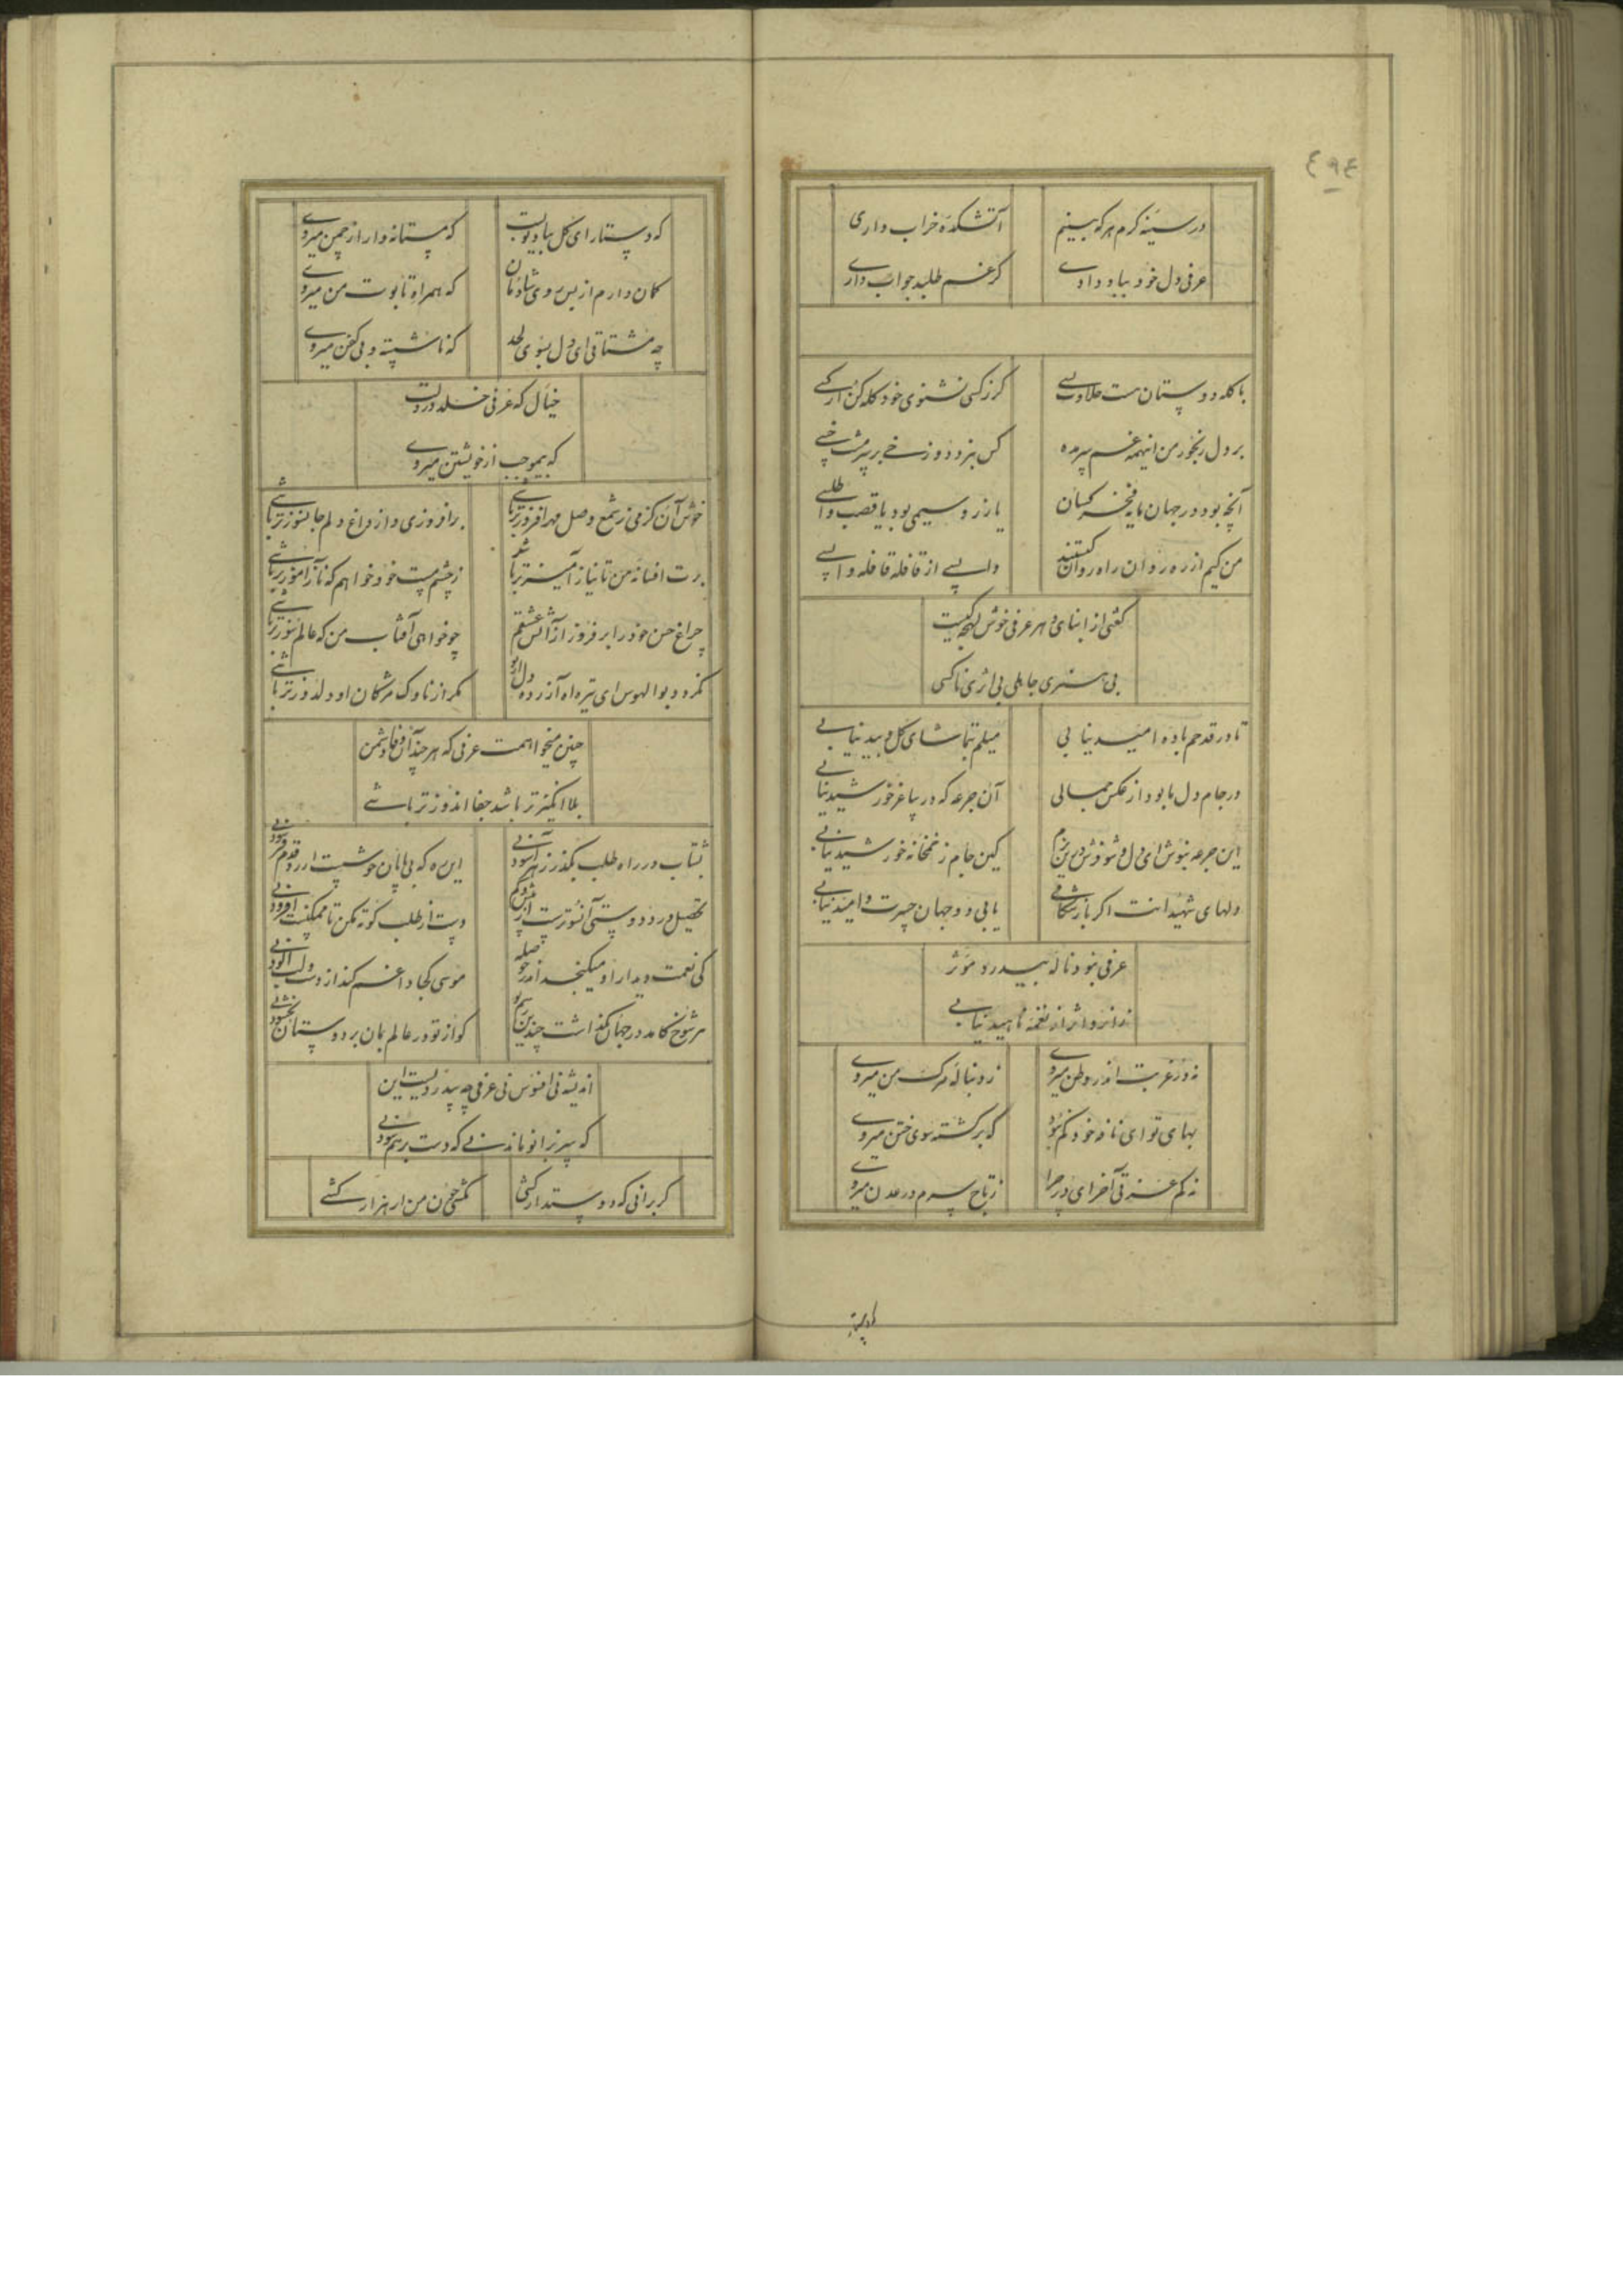 ٤٩٤
در سینه گرم هر که بینم
آتشکده خراب داری
عرفی دل خود بباد دادے
گر غم طلبد جواب دارے
با گله دوستان هست حلاوت بسے
گر ز کسی نشنوی خود گله کن از کسے
بر دل رنجور من اینهمه غم سر مده
کس نبرد دوزخے بر سر مشت خسے
آنچه بود در جهان مایه فخر کسان
یا زر و سیمی بود یا قصب و اطلسے
من کیم از ره روان راه روان کیستند
واپسے از قافله قافله واپسے
گفتی از ابنای دهر عرفی خوش لهجه کیست
بی هنری جاهلی بی اثری ناکسی
تا در قدحم باده امید نیابی
میلم بتماشای گل و بید نیابے
در جام دل ما بود از عکس جمالی
آن جرعه که در ساغر خورشید نیابے
این جرعه بنوش ای دل و شو خوش درین بزم
کین جام ز خمخانه خورشید نیابے
دلهای شهیدانت اگر باز شکافے
یابی دو جهان حسرت و امید نیابے
عرفی نبود ناله بیدرد مؤثر
زانرو اثر از نغمه ناهید نیابے
نه در غربت اندر وطن میروے
ز دنباله مرگ من میروے
بهای تو ای نافه خود کم نبود
که برگشته سوی ختن میروے
نه کم عزتی آخر ای در چرا
ز تاج سرم در عدن میروے
که دستار ای گل بباد تو بست
که مستانه وار از چمن میروے
گمان دارم از بس روی شادمان
که همراه تابوت من میروے
چه مشتاقی ای دل بسوی لحد
که ناشسته و بی کفن میروے
خیال که عرفی خلد در دلت
که بیموجب از خویشتن میروے
خوش آن کز می ز شمع وصل مه افروزتر باشے
برافروزی و از داغ دلم جانسوزتر باشے
برت افسانه من تا نیاز آمیزتر باشد
ز چشم مست خود خواهم که ناز آموزتر باشے
چراغ حسن خود را بر فروز از آتش عشقم
چو خواهی آفتاب من که عالم سوزتر باشے
نگردد بوالهوس ای تیر آه آزرده دل از تو
مگر از ناوک مژگان او دلدوزتر باشے
چنین میخواهمت عرفی که هر چند آن وفا دشمن
بلا انگیزتر باشد جفا اندوزتر باشے
بشتاب در راه طلب بگذر ز هر آسودنے
این ره که بی پایان خوشست ارزد قدم فرسودنے
تحصیل درد دوستی آنسوترست
دست از طلب کوته مکن تا ممکنست افزودنے
کی نعمت دیدار او میگنجد اندر حوصله
موسی کجا داغم کند از دست و لب آلودنے
هر شوخ کامد در جهان بگذاشت چندین رسم نو
کو از تو در عالم بمان بر دوستان بخشودنے
اندیشه نی افسوس نی عرفی چه بیدردیست این
که سر بزانو ماندنے که دست بر هم سودنے
گر برانی که دوستدار کشی
نکشی چون من ار هزار کشے